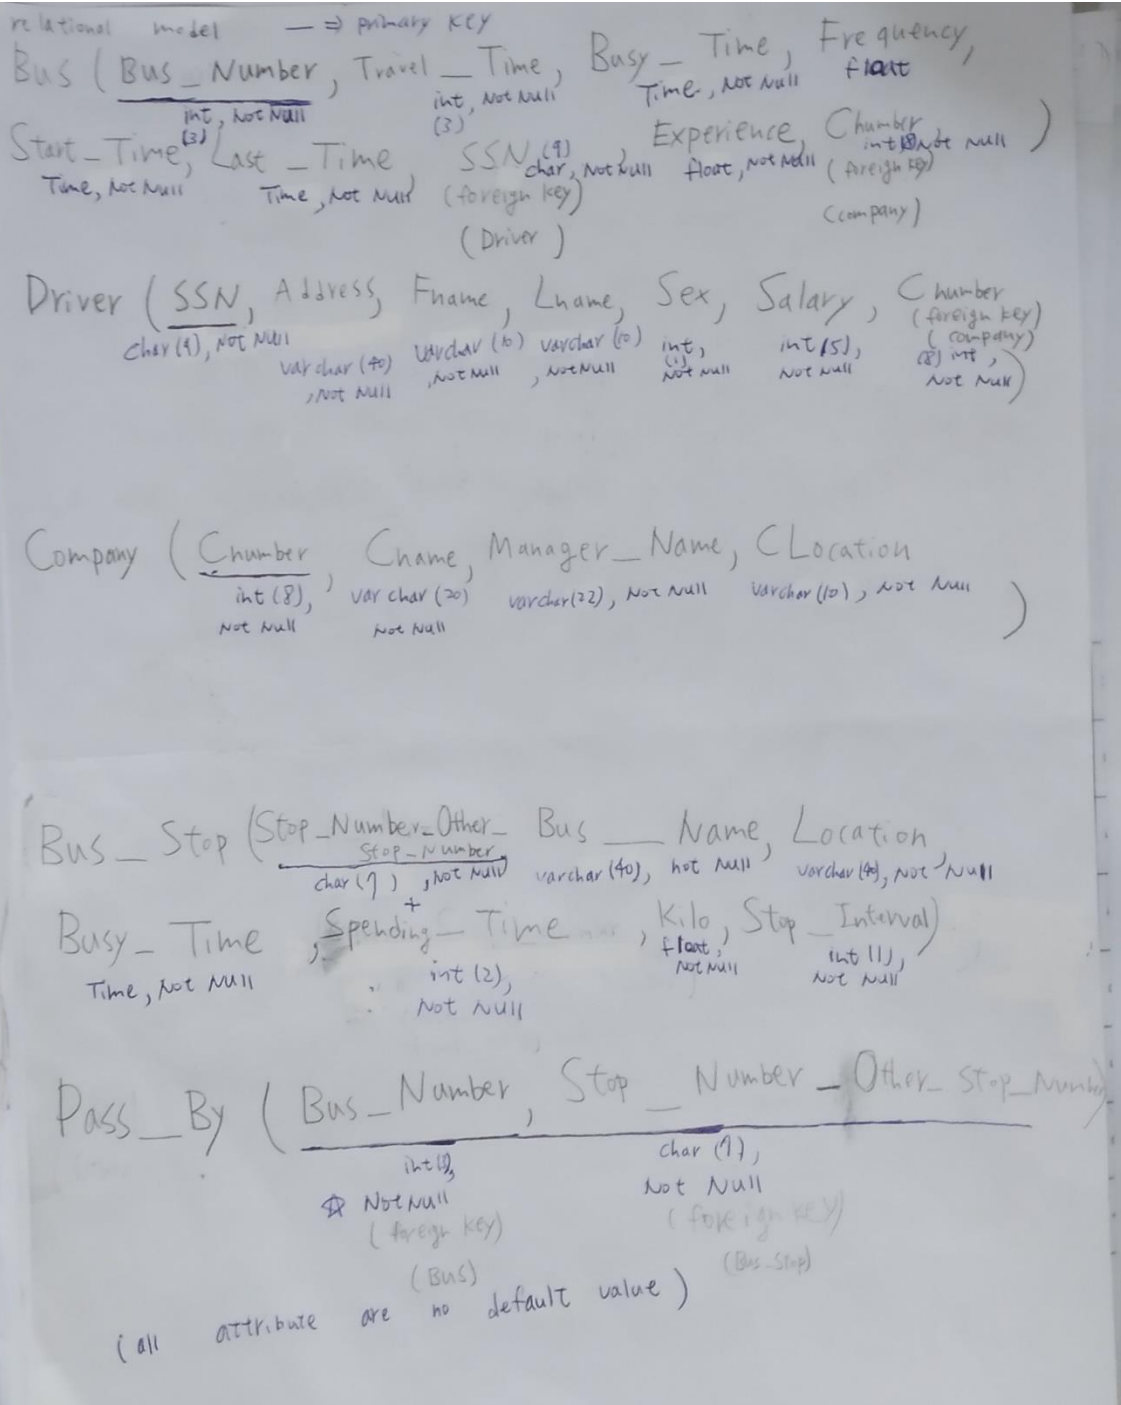 relational model —⇒ primary key
Bus ( Bus_Number, Travel_Time, Busy_Time, Frequency,
int, Not Null int, Not Null Time, Not Null float
(3) (3)
Start_Time, Last_Time, SSN, Experience, Cnumber )
Time, Not Null Time, Not Null char(9), Not Null float, Not Null int(8) Not Null
(foreign key) (foreign key)
(Driver) (company)
Driver ( SSN, Address, Fname, Lname, Sex, Salary, Cnumber
char(9), Not Null varchar(40), Not Null varchar(10), Not Null varchar(10), Not Null int(1), Not Null int(5), Not Null (foreign key)
(company)
(8) int,
Not Null )
Company ( Cnumber, Cname, Manager_Name, CLocation
int(8), varchar(20) varchar(22), Not Null varchar(10), Not Null
Not Null Not Null )
Bus_Stop (Stop_Number_Other_ Bus_Name, Location,
Stop_Number
char(7), Not Null varchar(40), not Null varchar(40), Not Null
Busy_Time, Spending_Time, Kilo, Stop_Interval)
Time, Not Null int(2), float, int(1),
Not Null Not Null Not Null
Pass_By ( Bus_Number, Stop_Number_Other_Stop_Number)
int(3), char(7),
☆ Not Null Not Null
(foreign key) (foreign key)
(Bus) (Bus_Stop)
(all attribute are no default value)